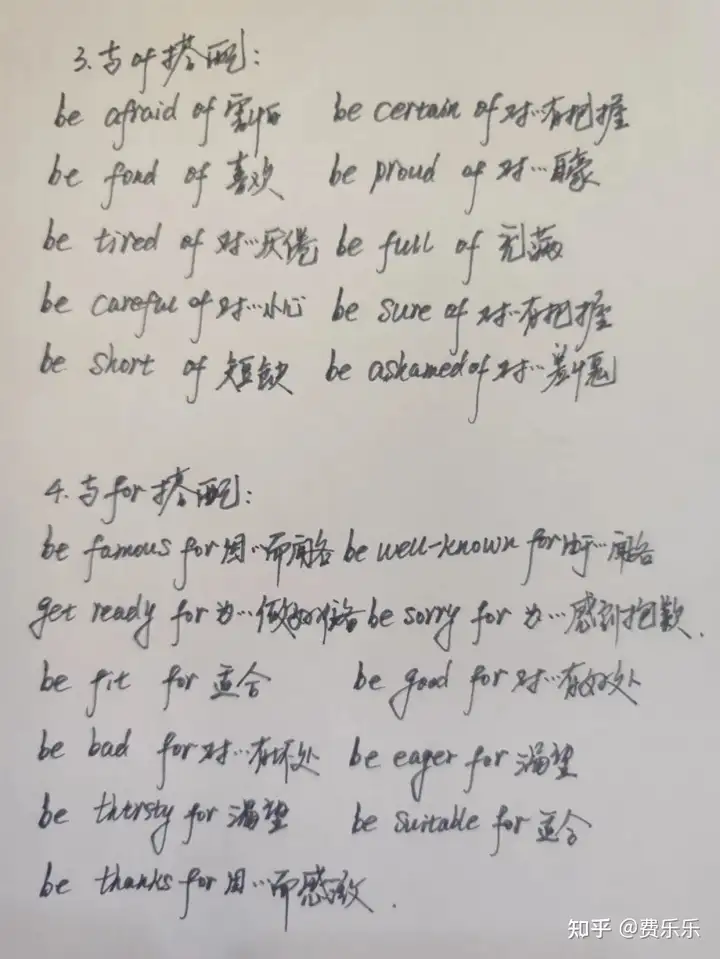 3.与of搭配:
be afraid of 害怕 be certain of 对…有把握
be fond of 喜欢 be proud of 对…自豪
be tired of 对…厌倦 be full of 充满
be careful of 对…小心 be sure of 对…有把握
be short of 短缺 be ashamed of 对…羞愧
4.与for搭配:
be famous for 因…而闻名 be well-known for 由于…闻名
get ready for 为…做好准备 be sorry for 为…感到抱歉.
be fit for 适合 be good for 对…有好处
be bad for 对…有坏处 be eager for 渴望
be thirsty for 渴望 be suitable for 适合
be thanks for 因…而感激.
知乎 @费乐乐